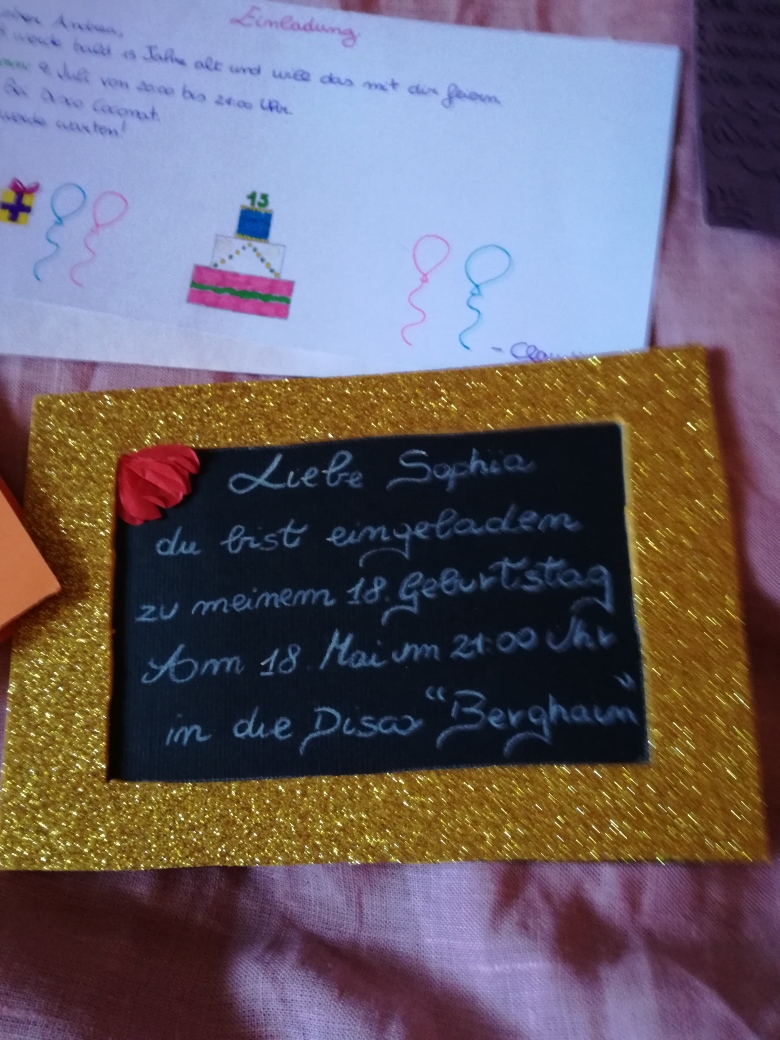 Einladung
Andrea,
bald 15 Jahre alt und will das mit dir feiern
2. Juli von 20:00 bis 24:00 Uhr
Disco Coconut
warten!
15
Liebe Sophia
du bist eingeladen
zu meinem 18. Geburtstag
Am 18. Mai um 21:00 Uhr
in die Disco "Berghain"